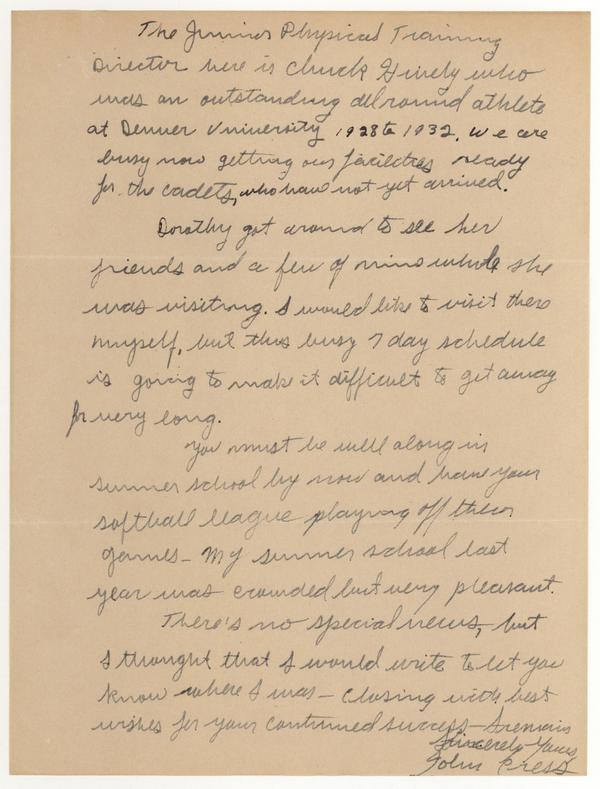 The Junior Physical Training
Director here is Chuck Hively who
was an outstanding allround athlete
at Denver University 1928 to 1932. We are
busy now getting our facilities ready
for the cadets, who have not yet arrived.
Dorothy got around to see her
friends and a few of mine while she
was visiting. I would like to visit there
myself, but this busy 7 day schedule
is going to make it difficult to get away
for very long.
You must be well along in
summer school by now and have your
softball league playing off their
games - My summer school last
year was crowded but very pleasant.
There's no special news, but
I thought that I would write to let you
know where I was - Closing with best
wishes for your continued success - I remain
Sincerely Yours
John Cress